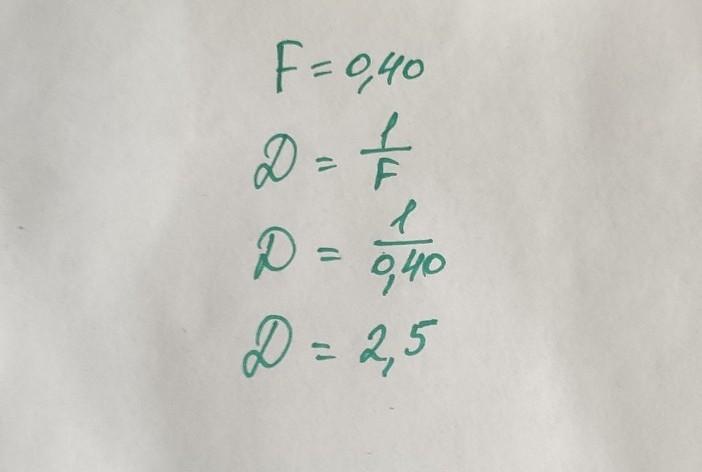 F = 0,40
D = 1/F
D = 1/0,40
D = 2,5